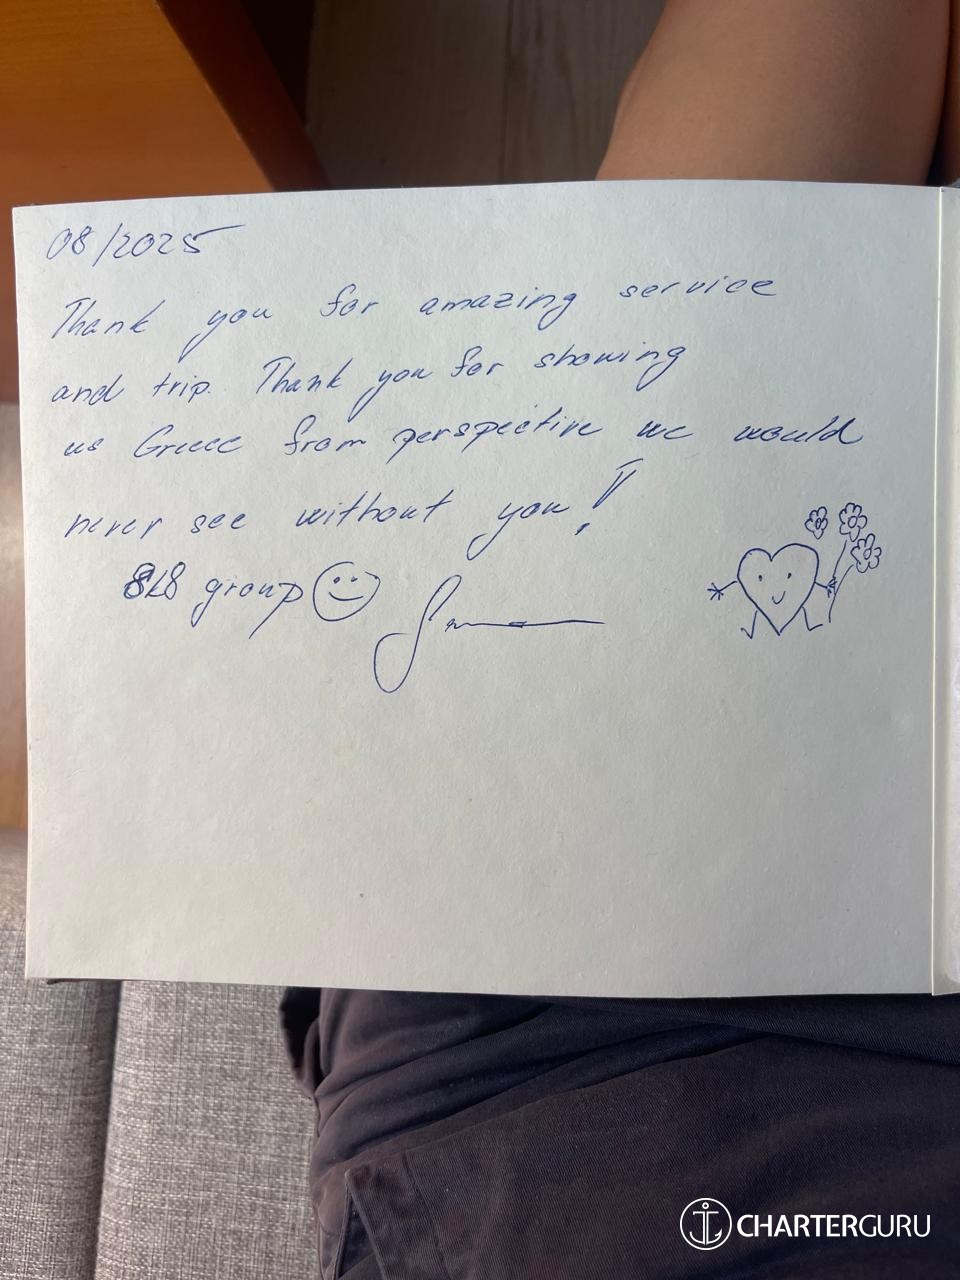 08/2025
Thank you for amazing service
and trip. Thank you for showing
us Greece from perspective we would
never see without you!
group
CHARTERGURU